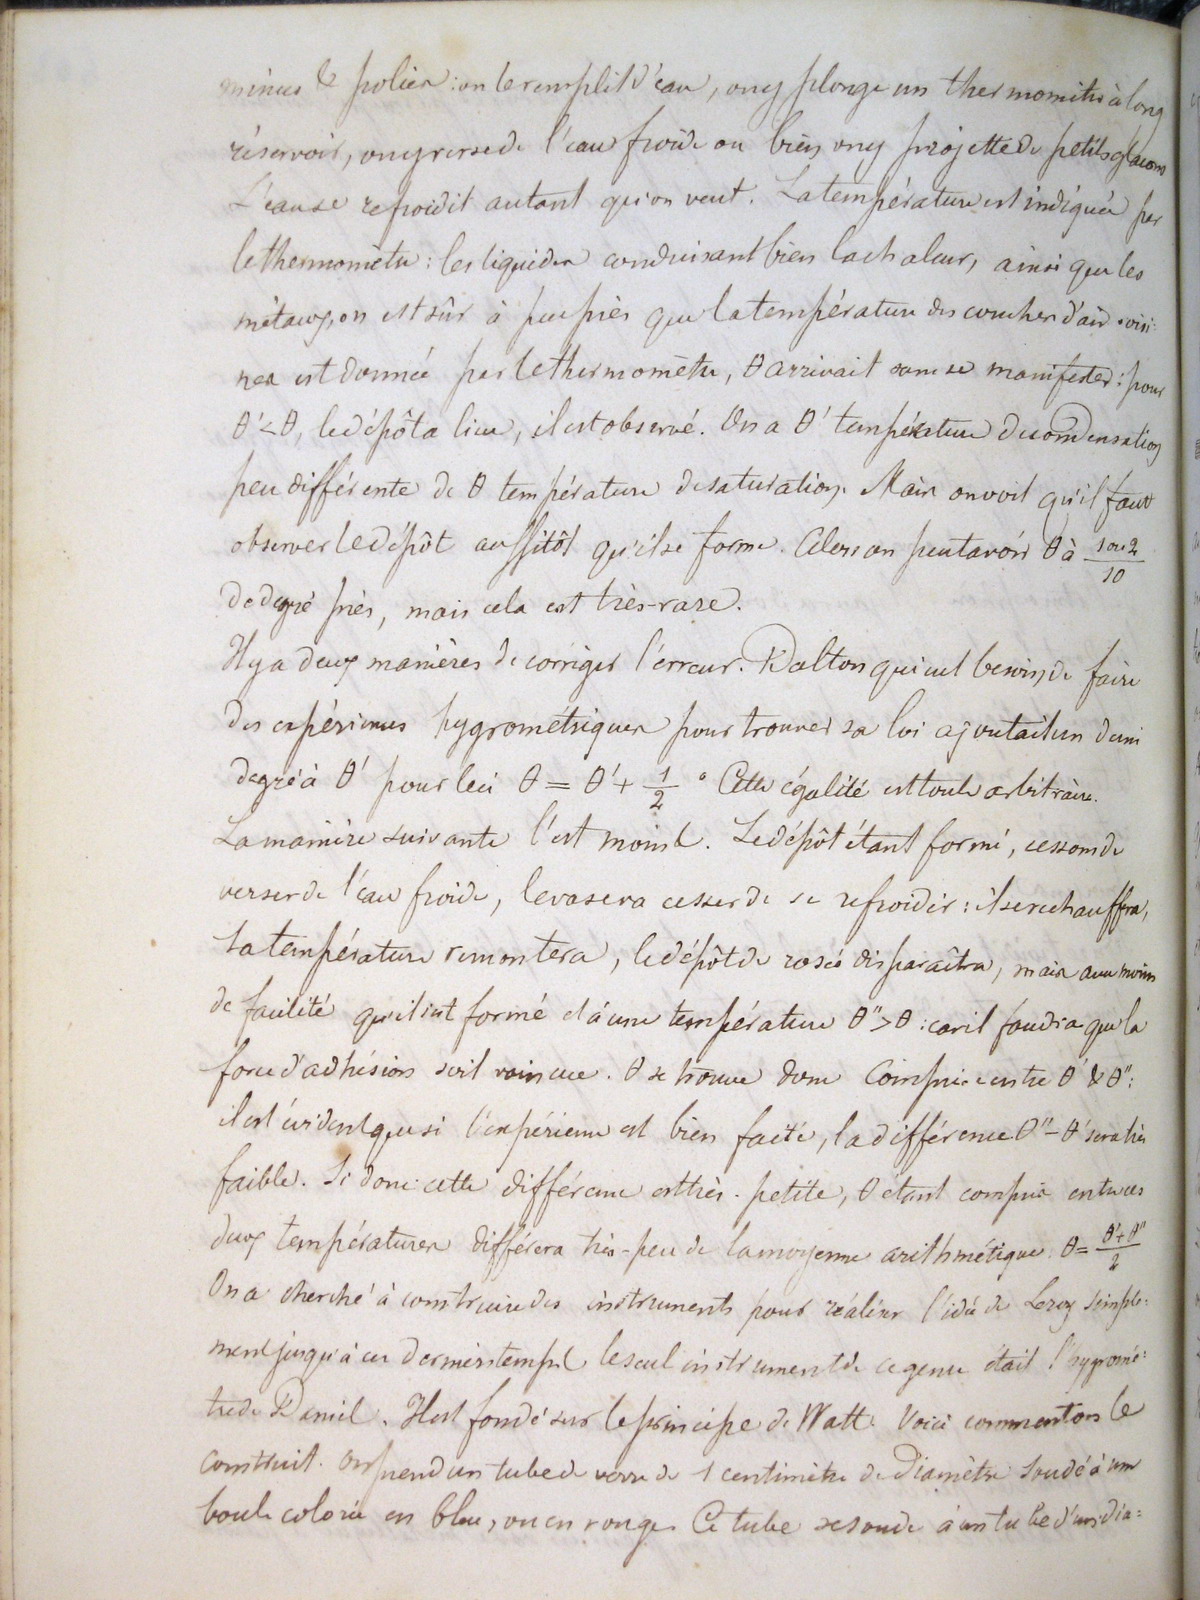 minces & polies : on le remplit d'eau, on y plonge un thermomètre à long
réservoir, on y verse de l'eau froide ou bien on y projette de petits glaçons
L'eau se refroidit autant qu'on veut. La température est indiquée par
le thermomètre : les liquides conduisant bien la chaleur, ainsi que les
métaux, on est sûr à peu près que la température des couches d'air voisi-
nes est donnée par le thermomètre, θ arrivait sans se manifester : pour
θ' < θ, le dépôt a lieu, il est observé. On a θ' température de condensation
peu différente de θ température de saturation. Mais on voit qu'il faut
observer le dépôt aussitôt qu'il se forme. Alors on peut avoir θ à 1 ou 2/10
de degré près, mais cela est très-rare.
Il y a deux manières de corriger l'erreur. Dalton qui eut besoin de faire
des expériences hygrométriques pour trouver sa loi ajoutait un demi
degré à θ' pour lui θ = θ' + 1/2 ° Cette égalité est toute arbitraire.
La manière suivante l'est moins. Le dépôt étant formé, cessons de
verser de l'eau froide, le vase va cesser de se refroidir : il se rechauffera,
sa température remontera, le dépôt de rosée disparaîtra, mais avec moins
de facilité qu'il s'est formé et à une température θ'' > θ : car il faudra que la
force d'adhésion soit vaincue. θ se trouve donc comprise entre θ' & θ'' :
il est évident que si l'expérience est bien faite, la différence θ'' - θ' sera très
faible. Si donc cette différence est très-petite, θ étant compris entre ces
deux températures différera très-peu de la moyenne arithmétique. θ = θ' + θ''/2
On a cherché à construire des instruments pour réaliser l'idée de Leroy simple-
ment jusqu'à ces derniers temps le seul instrument de ce genre était l'hygromè-
tre de Daniel. Il est fondé sur le principe de Watt. Voici comment on le
construit. On prend un tube de verre de 1 centimètre de diamètre soudé à une
boule colorée en bleu, ou en rouge. Ce tube se soude à un tube d'un dia-